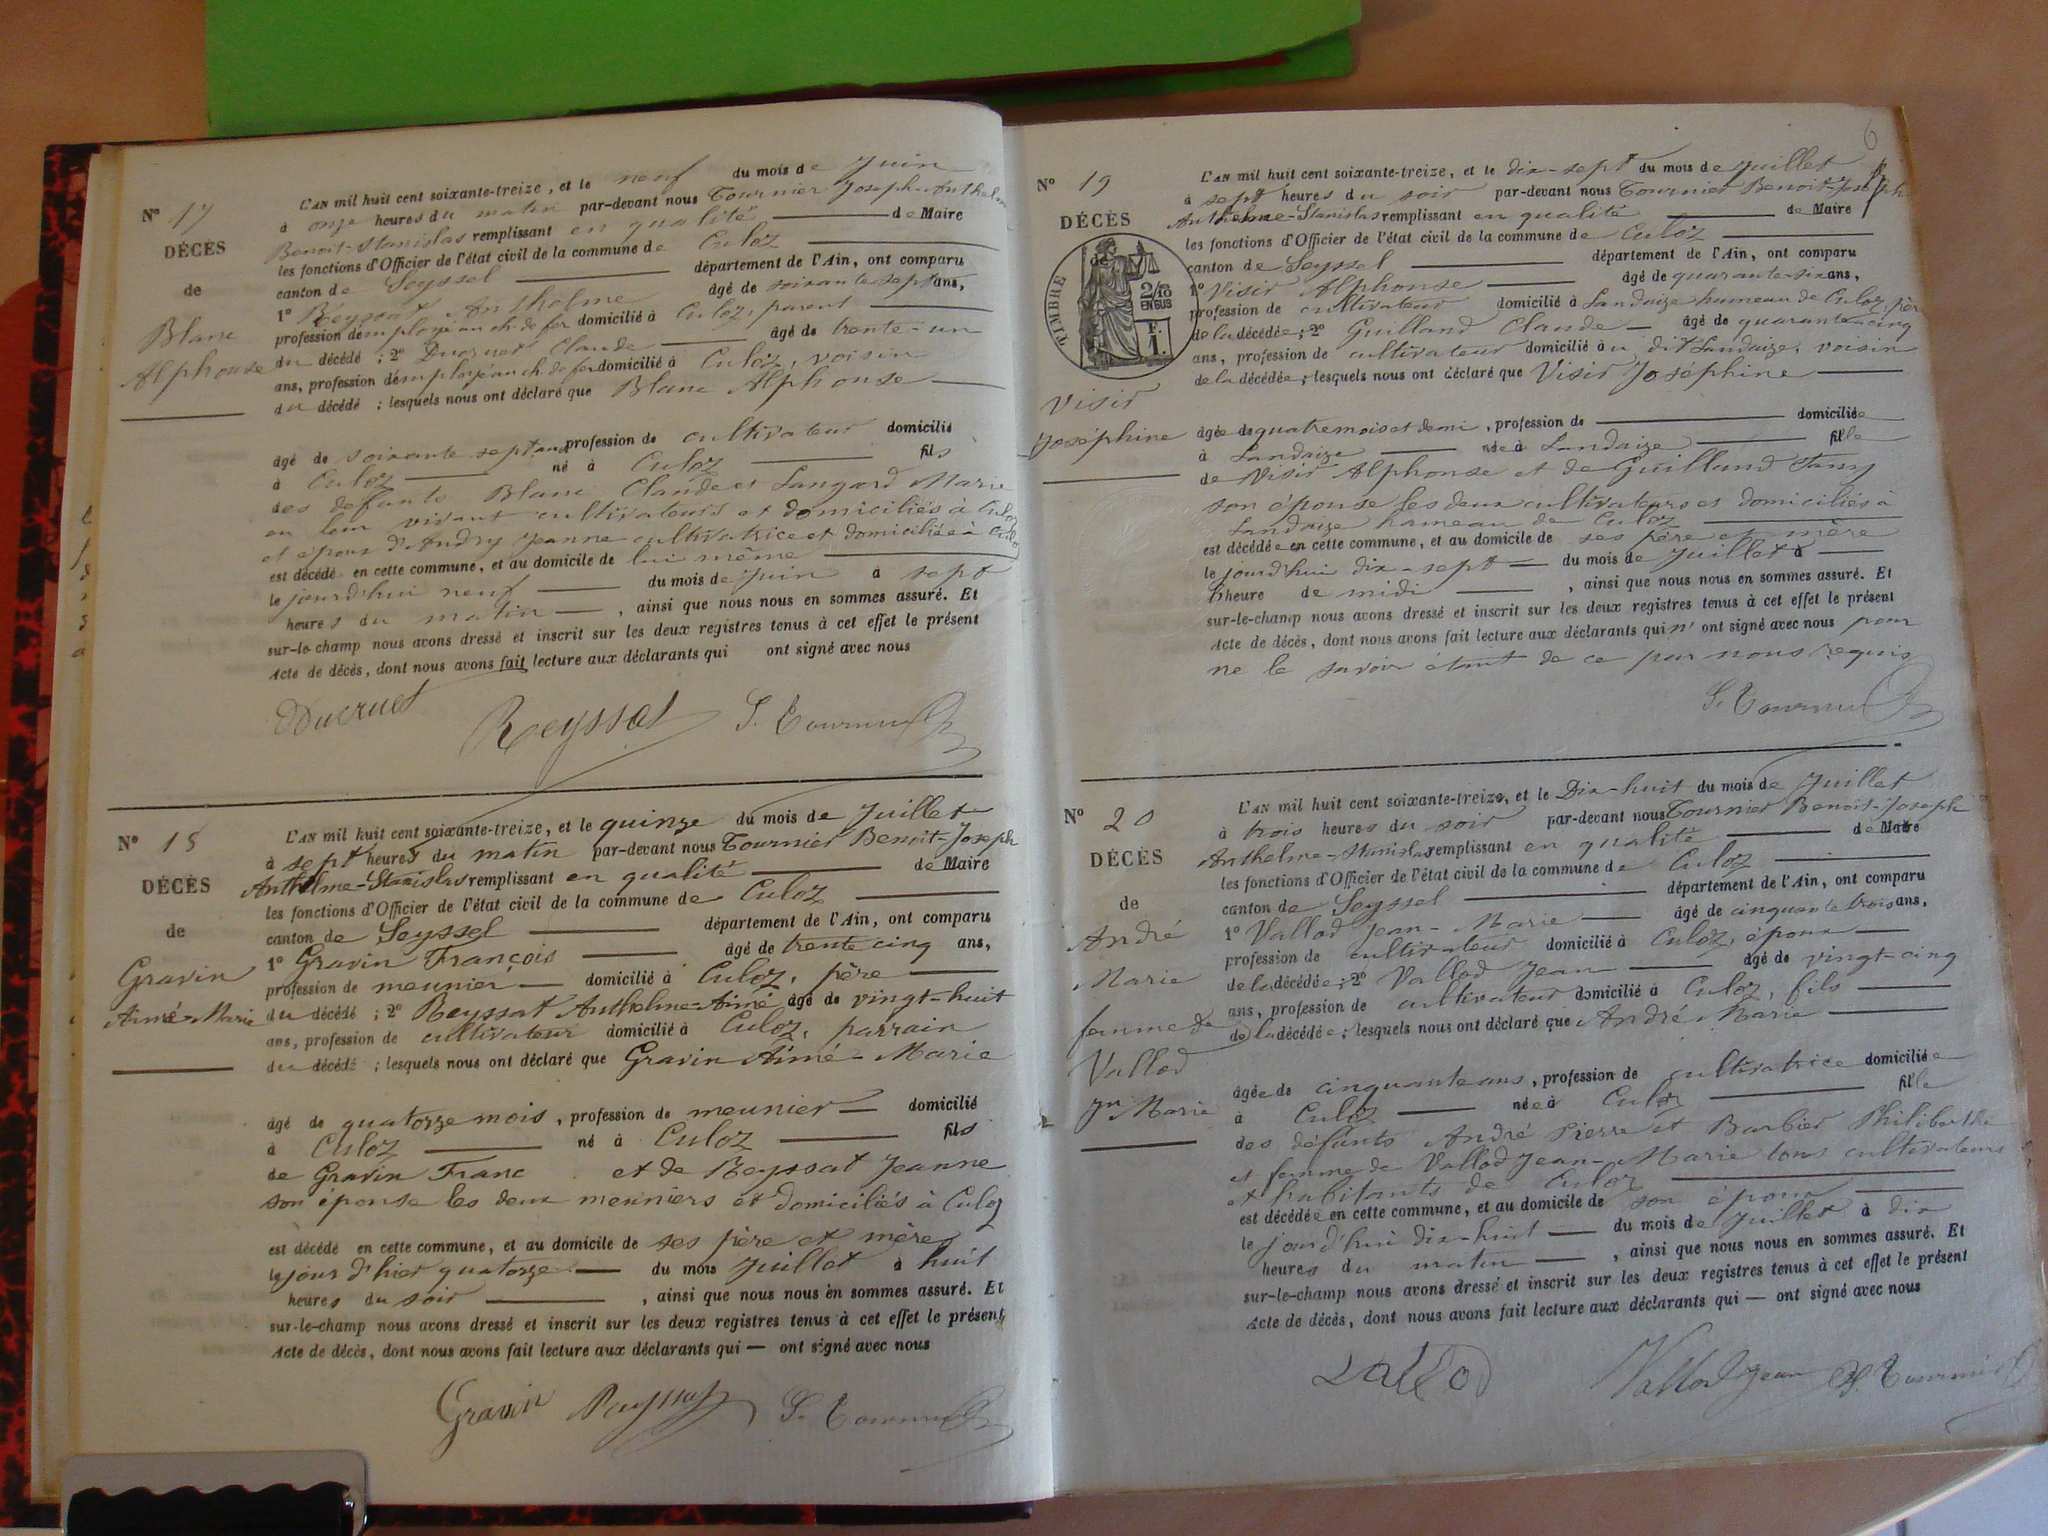 N° 17
DÉCÈS
de
Blanc
Alphonse
L'AN mil huit cent soixante-treize, et le neuf du mois de Juin
à onze heures du matin par-devant nous Tournier Joseph-Anthelme
Benoit-Stanislas remplissant en qualité de Maire
les fonctions d'Officier de l'état civil de la commune de Culoz
canton de Seyssel département de l'Ain, ont comparu
1° Reyssat Anthelme âgé de soixante-sept ans,
profession d'employé au ch. de fer domicilié à Culoz, parent
du décédé ; 2° Ducruet Claude âgé de trente-un
ans, profession d'employé au ch. de fer domicilié à Culoz, voisin
du décédé ; lesquels nous ont déclaré que Blanc Alphonse
âgé de soixante sept ans profession de cultivateur domicilié
à Culoz né à Culoz fils
des défunts Blanc Claude et Langard Marie
en leur vivant cultivateurs et domiciliés à Culoz
et époux d'Andry Jeanne cultivatrice et domiciliée à Culoz
est décédé en cette commune, et au domicile de lui même
le jourd'hui neuf du mois de juin à sept
heures du matin , ainsi que nous nous en sommes assuré. Et
sur-le-champ nous avons dressé et inscrit sur les deux registres tenus à cet effet le présent
Acte de décès, dont nous avons fait lecture aux déclarants qui ont signé avec nous
Ducruet Reyssat S. Tournier
N° 18
DÉCÈS
de
Gravin
Aimé-Marie
L'AN mil huit cent soixante-treize, et le quinze du mois de Juillet
à sept heures du matin par-devant nous Tournier Benoit-Joseph
Anthelme-Stanislas remplissant en qualité de Maire
les fonctions d'Officier de l'état civil de la commune de Culoz
canton de Seyssel département de l'Ain, ont comparu
1° Gravin François âgé de trente cinq ans,
profession de meunier domicilié à Culoz, père
du décédé ; 2° Reyssat Anthelme-Aimé âgé de vingt-huit
ans, profession de cultivateur domicilié à Culoz, parrain
du décédé ; lesquels nous ont déclaré que Gravin Aimé-Marie
âgé de quatorze mois, profession de meunier domicilié
à Culoz né à Culoz fils
de Gravin Franc et de Reyssat Jeanne
son épouse les deux meuniers et domiciliés à Culoz
est décédé en cette commune, et au domicile de ses père et mère
le jour d'hier quatorze du mois Juillet à huit
heures du soir , ainsi que nous nous en sommes assuré. Et
sur-le-champ nous avons dressé et inscrit sur les deux registres tenus à cet effet le présent
Acte de décès, dont nous avons fait lecture aux déclarants qui — ont signé avec nous
Gravin Reyssat S. Tournier
6
N° 19
DÉCÈS
de
TIMBRE
2/10
EN SUS
F.
1.
Visir
Joséphine
L'AN mil huit cent soixante-treize, et le dix-sept du mois de Juillet
à sept heures du soir par-devant nous Tournier Benoit-Joseph
Anthelme-Stanislas remplissant en qualité de Maire
les fonctions d'Officier de l'état civil de la commune de Culoz
canton de Seyssel département de l'Ain, ont comparu
1° Visir Alphonse âgé de quarante-six ans,
profession de cultivateur domicilié à Landaize hameau de Culoz, père
de la décédée ; 2° Guilland Claude âgé de quarante cinq
ans, profession de cultivateur domicilié à u dit Landaize, voisin
de la décédée ; lesquels nous ont déclaré que Visir Joséphine
âgée de quatre mois et demi , profession de domiciliée
à Landaize née à Landaize fille
de Visir Alphonse et de Guilland Fany
son épouse les deux cultivateurs et domiciliés à
Landaize hameau de Culoz
est décédée en cette commune, et au domicile de ses père et mère
le jourd'hui dix-sept du mois de Juillet à
heure de midi , ainsi que nous nous en sommes assuré. Et
sur-le-champ nous avons dressé et inscrit sur les deux registres tenus à cet effet le présent
Acte de décès, dont nous avons fait lecture aux déclarants qui n' ont signé avec nous pour
ne le savoir étant de ce par nous requis
S. Tournier
N° 20
DÉCÈS
de
André
Marie
femme de
Vallod
Jn Marie
L'AN mil huit cent soixante-treize, et le Dix-huit du mois de Juillet
à trois heures du soir par-devant nous Tournier Benoit-Joseph
Anthelme-Stanislas remplissant en qualité de Maire
les fonctions d'Officier de l'état civil de la commune de Culoz
canton de Seyssel département de l'Ain, ont comparu
1° Vallod Jean-Marie âgé de cinquante trois ans,
profession de cultivateur domicilié à Culoz, époux
de la décédée ; 2° Vallod Jean âgé de vingt-cinq
ans, profession de cultivateur domicilié à Culoz, fils
de la décédée ; lesquels nous ont déclaré que André Marie
âgée de cinquante ans, profession de cultivatrice domiciliée
à Culoz née à Culoz fille
des défunts André Pierre et Barbier Philiberthe
et femme de Vallod Jean-Marie tous cultivateurs
et habitants de Culoz
est décédée en cette commune, et au domicile de son époux
le jourd'hui dix-huit du mois de Juillet à dix
heures du matin , ainsi que nous nous en sommes assuré. Et
sur-le-champ nous avons dressé et inscrit sur les deux registres tenus à cet effet le présent
Acte de décès, dont nous avons fait lecture aux déclarants qui — ont signé avec nous
Vallod Vallod Jean S. Tournier